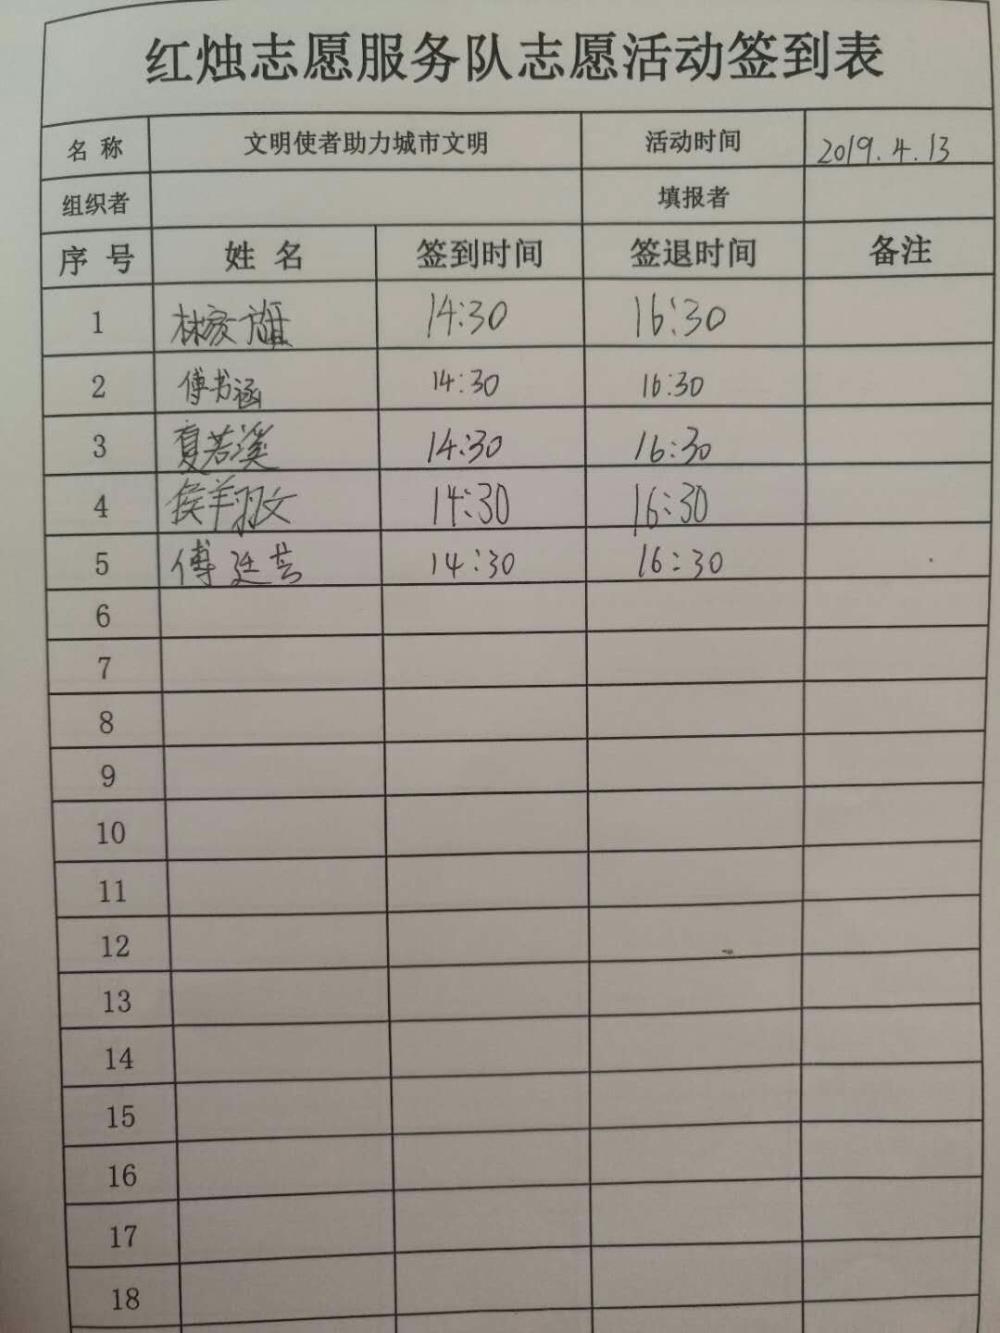 红烛志愿服务队志愿活动签到表
名 称 文明使者助力城市文明 活动时间 2019.4.13
组织者 填报者
序 号 姓 名 签到时间 签退时间 备注
1 林 旗 14:30 16:30
2 傅书涵 14:30 16:30
3 夏若溪 14:30 16:30
4 侯翔文 14:30 16:30
5 傅廷芸 14:30 16:30
6
7
8
9
10
11
12
13
14
15
16
17
18